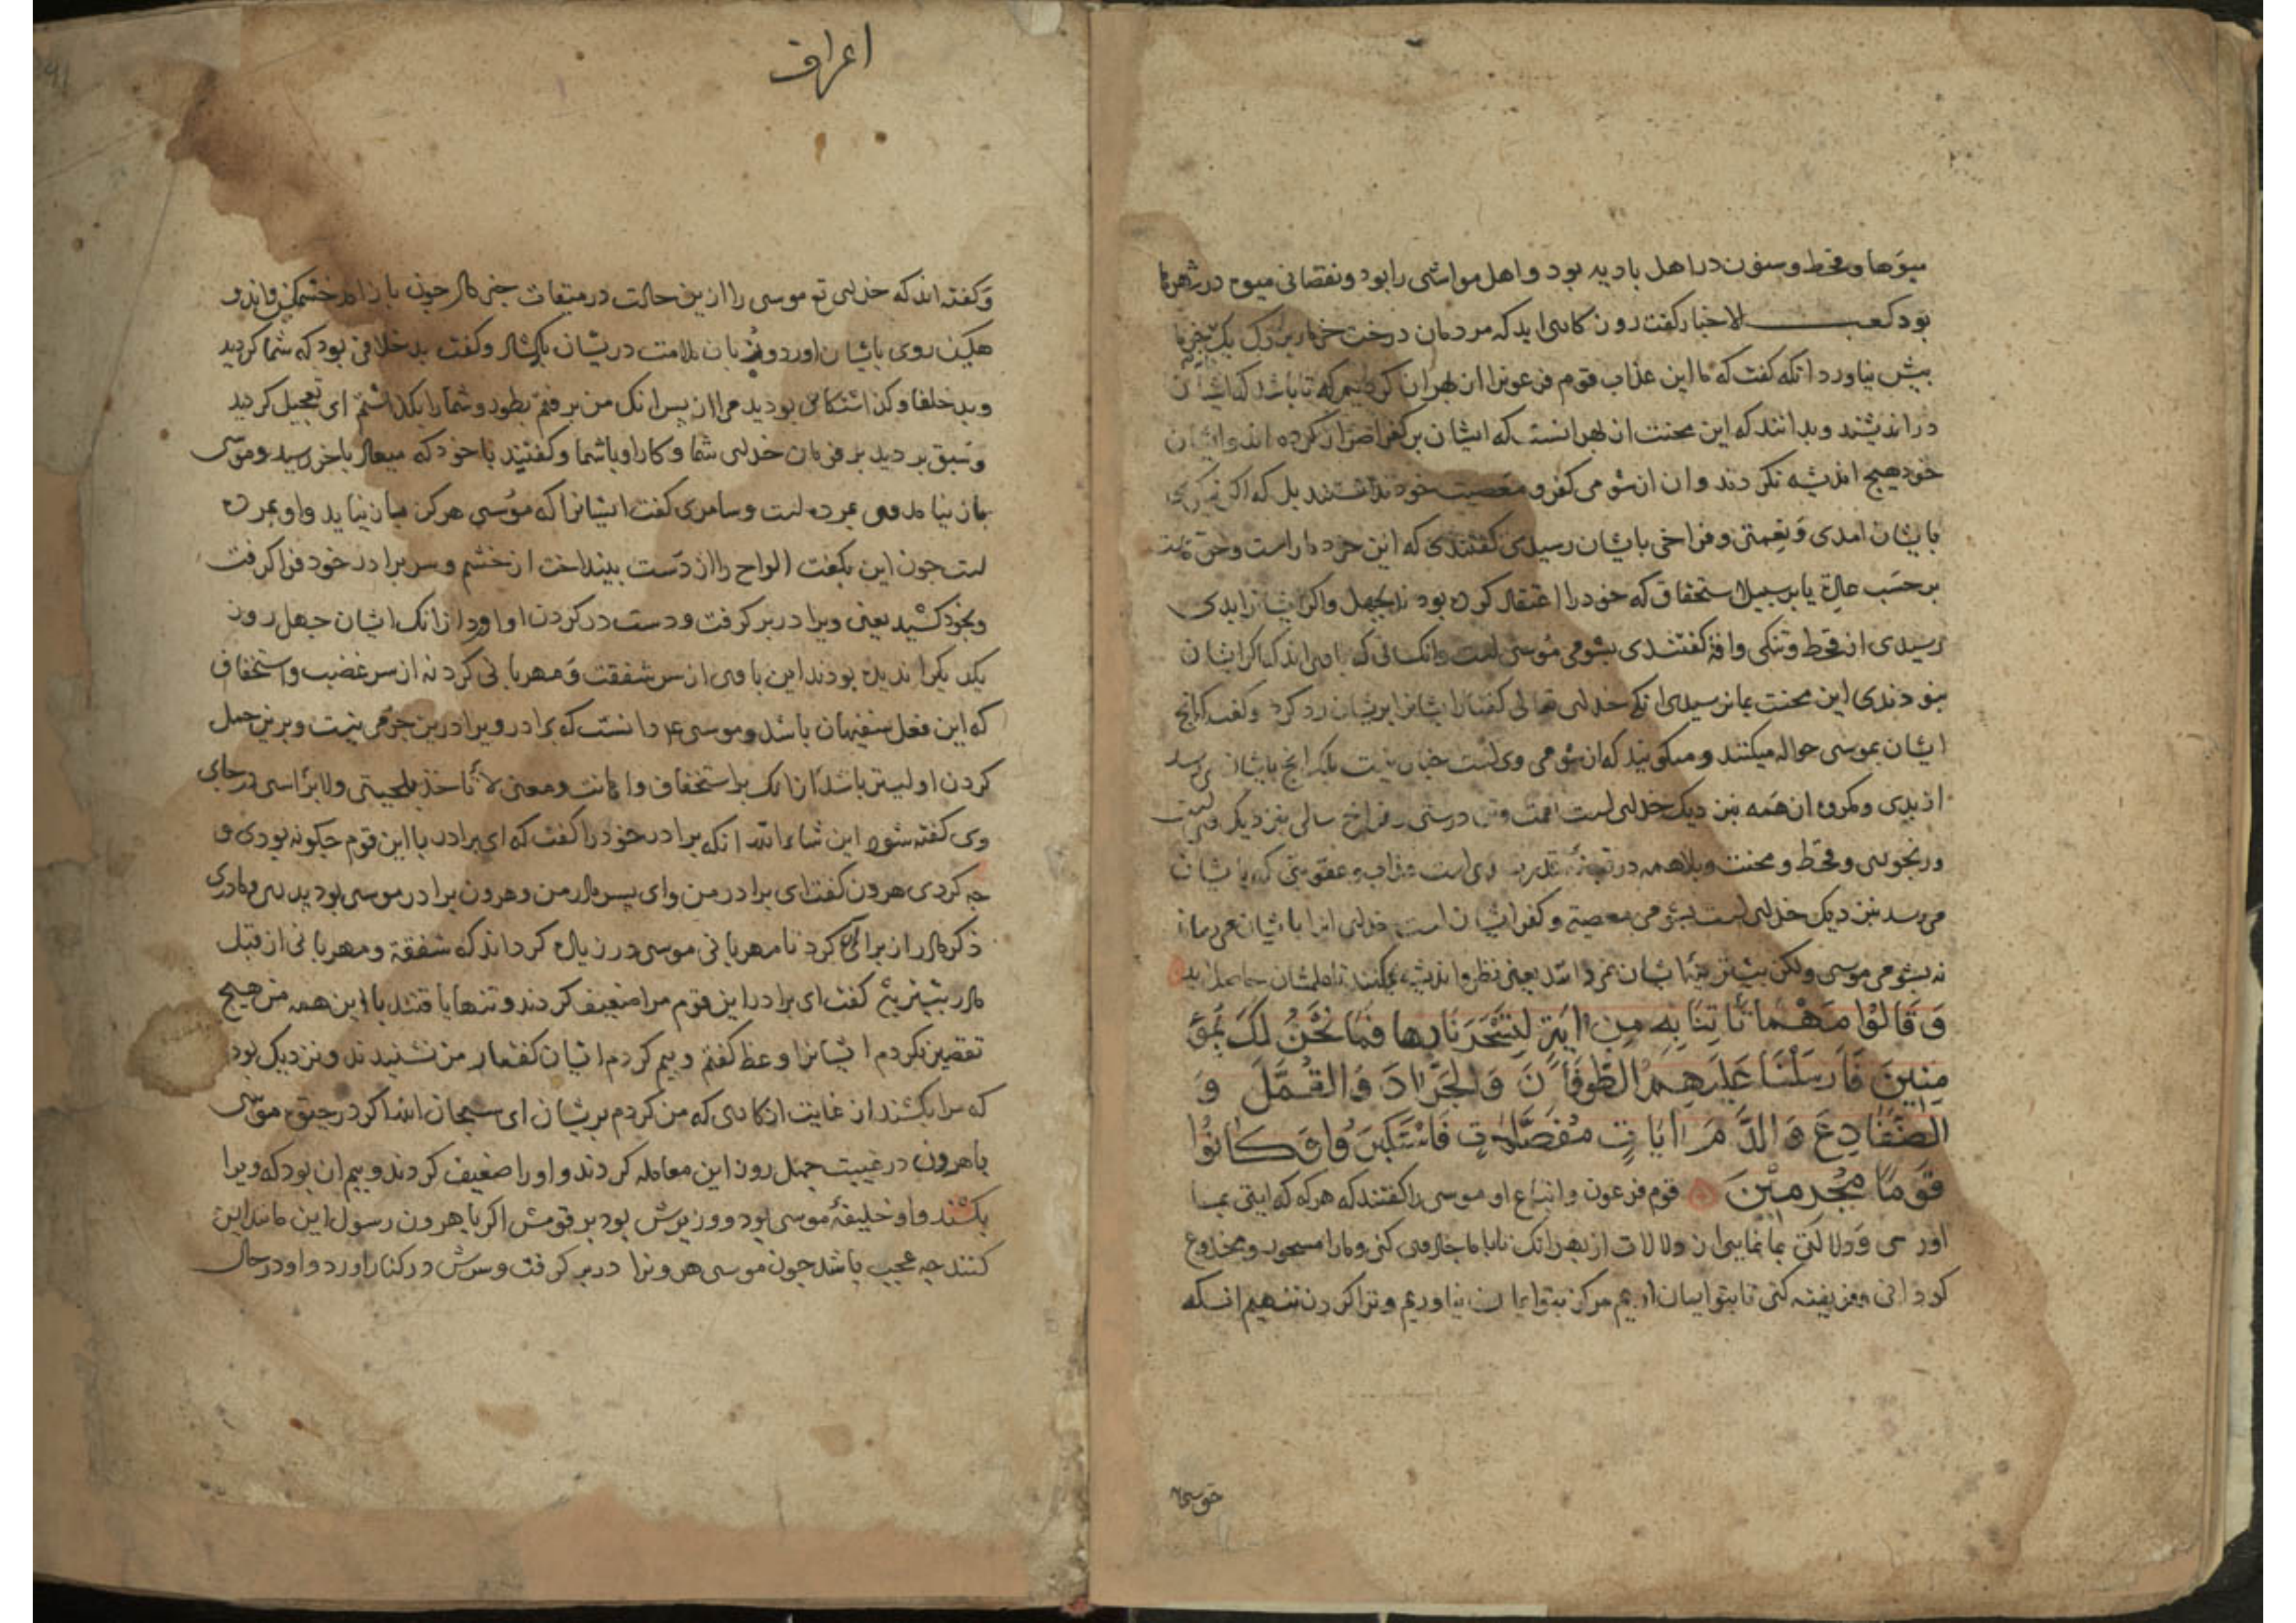 میوها و قحط و سنون در اهل بادیه بود و اهل مواشی را بود و نقصانی میوه در شهرها
بود کعب الاخبار کفت روز کاری اید که مردمان درخت خرما بزرک یک خرما
بیش نیاورد انکه کفت که ما این عذاب قوم فرعونرا از بهر ان کردیم که تا باشد که ایشان
در اندیشند و بدانند که این محنت از بهر انست که ایشان بر کفر اصرار کرده اند و ایشان
خود هیچ اندیشه نکردند و ان از شومی کفر و معصیت خود ندانستند بل که اکر نیکوی
بایشان امدی و نعمتی و فراخی بایشان رسیدی کفتندی که این خود ما راست و حق ماست
بر حسب عادة یا بر سبیل استحقاق که خود را اعتقاد کرده بودند بجهل و اکر ایشانرا بدی
رسیدی از قحط و تنکی و افة کفتندی بشومی موسی است و انک انی که با وی اند که اکر ایشان
نبودندی این محنت بما نرسیدی انکه خدای تعالی کفتار ایشانرا بریشان رد کرد و کفت که انج
ایشان بموسی حواله میکنند و میکویند که از شومی وی است چنان نیست بلکه انج بایشان می رسد
از بدی و مکروه ان همه بنزدیک خدای است نعمت و تن درستی و فراخ سالی بنزدیک وی است
و رنجوری و قحط و محنت و بلا همه در تقدیر وی است عذاب و عقوبتی که بایشان
می رسد بنزدیک خدای است بشومی معصیة و کفر ایشان است خدای انرا بایشان می رساند
نه بشومی موسی ولکن بیشترینه ایشان نمی دانند یعنی نظر و اندیشه نمی کنند تا علمشان حاصل اید
وَقَالُوا مَهْمَا تَأْتِنَا بِهِ مِنْ ايَةٍ لِتَسْحَرَنَا بِهَا فَمَا نَحْنُ لَكَ بِمُؤْ
مِنِينَ فَأَرْسَلْنَا عَلَيْهِمُ الطُّوفَانَ وَالْجَرَادَ وَالْقُمَّلَ وَ
الضَّفَادِعَ وَالدَّمَ ايَاتٍ مُفَصَّلَاتٍ فَاسْتَكْبَرُوا وَكَانُوا
قَوْمًا مُجْرِمِينَ قوم فرعون و اتباع او موسی را کفتند که هرکه که ایتی بما
اوری و دلالتی بما نمایی ان دلالات از بهر انک تا با ما جاذوی کنی و ما را مسحور و مخدوع
کردانی و فریفته کنی تا بتو ایمان اریم هرکز بتو ایمان نیاوریم و ترا کردن ننهیم انکه
حق سبحانه
اعراف
و کفته اند که خدای تع موسی را ازین حالت در میقات خبر داد چون باز امد خشمکین و اندو
هکین روی بایشان اورد و زبان بملامت دریشان بکشاد و کفت بد خلافتی بود که شما کردید
و بد خلفا و کذاشتکان بودید مرا از پس انک من برفتم بطور و شما را بکذاشتم ای تعجیل کردید
و سبق بردید بر فرمان خدای شما و کار او با شما و کفتید با خود که میعاد باخر رسید و موسی
باز نیامد و وی بمرده است و سامری کفت ایشانرا که موسی هرکز باز نیاید و او بمرده
است چون این بکفت الواح را از دست بینداخت از خشم و سر برادر خود فرا کرفت
و بخود کشید یعنی ویرا در بر کرفت و دست در کردن او اورد از انک ایشان چهل روز
یکدیکرا ندیده بودند این با وی از سر شفقت و مهربانی کرد نه از سر غضب و استخفاف
که این فعل سفیهان باشد و موسی ع دانست که برادر ویرا درین جرمی نیست و برین حمل
کردن اولیتر باشد از انک بر استخفاف و اهانت و معنی لا تأخذ بلحیتی و لا برأسی در جای
وی کفته شود این شاءالله انکه برادر خود را کفت که ای برادر با این قوم چکونه بودی و
چه کردی هرون کفت ای برادر من و ای پسر مادر من و هرون برادر موسی بود پدری و مادری
ذکر مادر از برای ان کرد تا مهربانی موسی در زیاده کرداند که شفقة و مهربانی از قبل
مادر بیشتر بود کفت ای برادر این قوم مرا ضعیف کردند و تنها یافتند با این همه من هیچ
تقصیر نکردم ایشانرا وعظ کفتم و بیم کردم ایشان کفتار من نشنیدند و نزدیک بود
که مرا بکشند از غایت انکاری که من کردم بریشان ای سبحان الله اکر در حق موسی
با هرون در غیبت چهل روز این معامله کردند و او را ضعیف کردند و بیم ان بود که ویرا
بکشند و او خلیفۀ موسی بود و وزیرش بود بر قومش اکر با هرون رسول این مانند این
کنند چه عجب باشد چون موسی هرونرا در بر کرفت و سرش در کنار اورد و او در حال